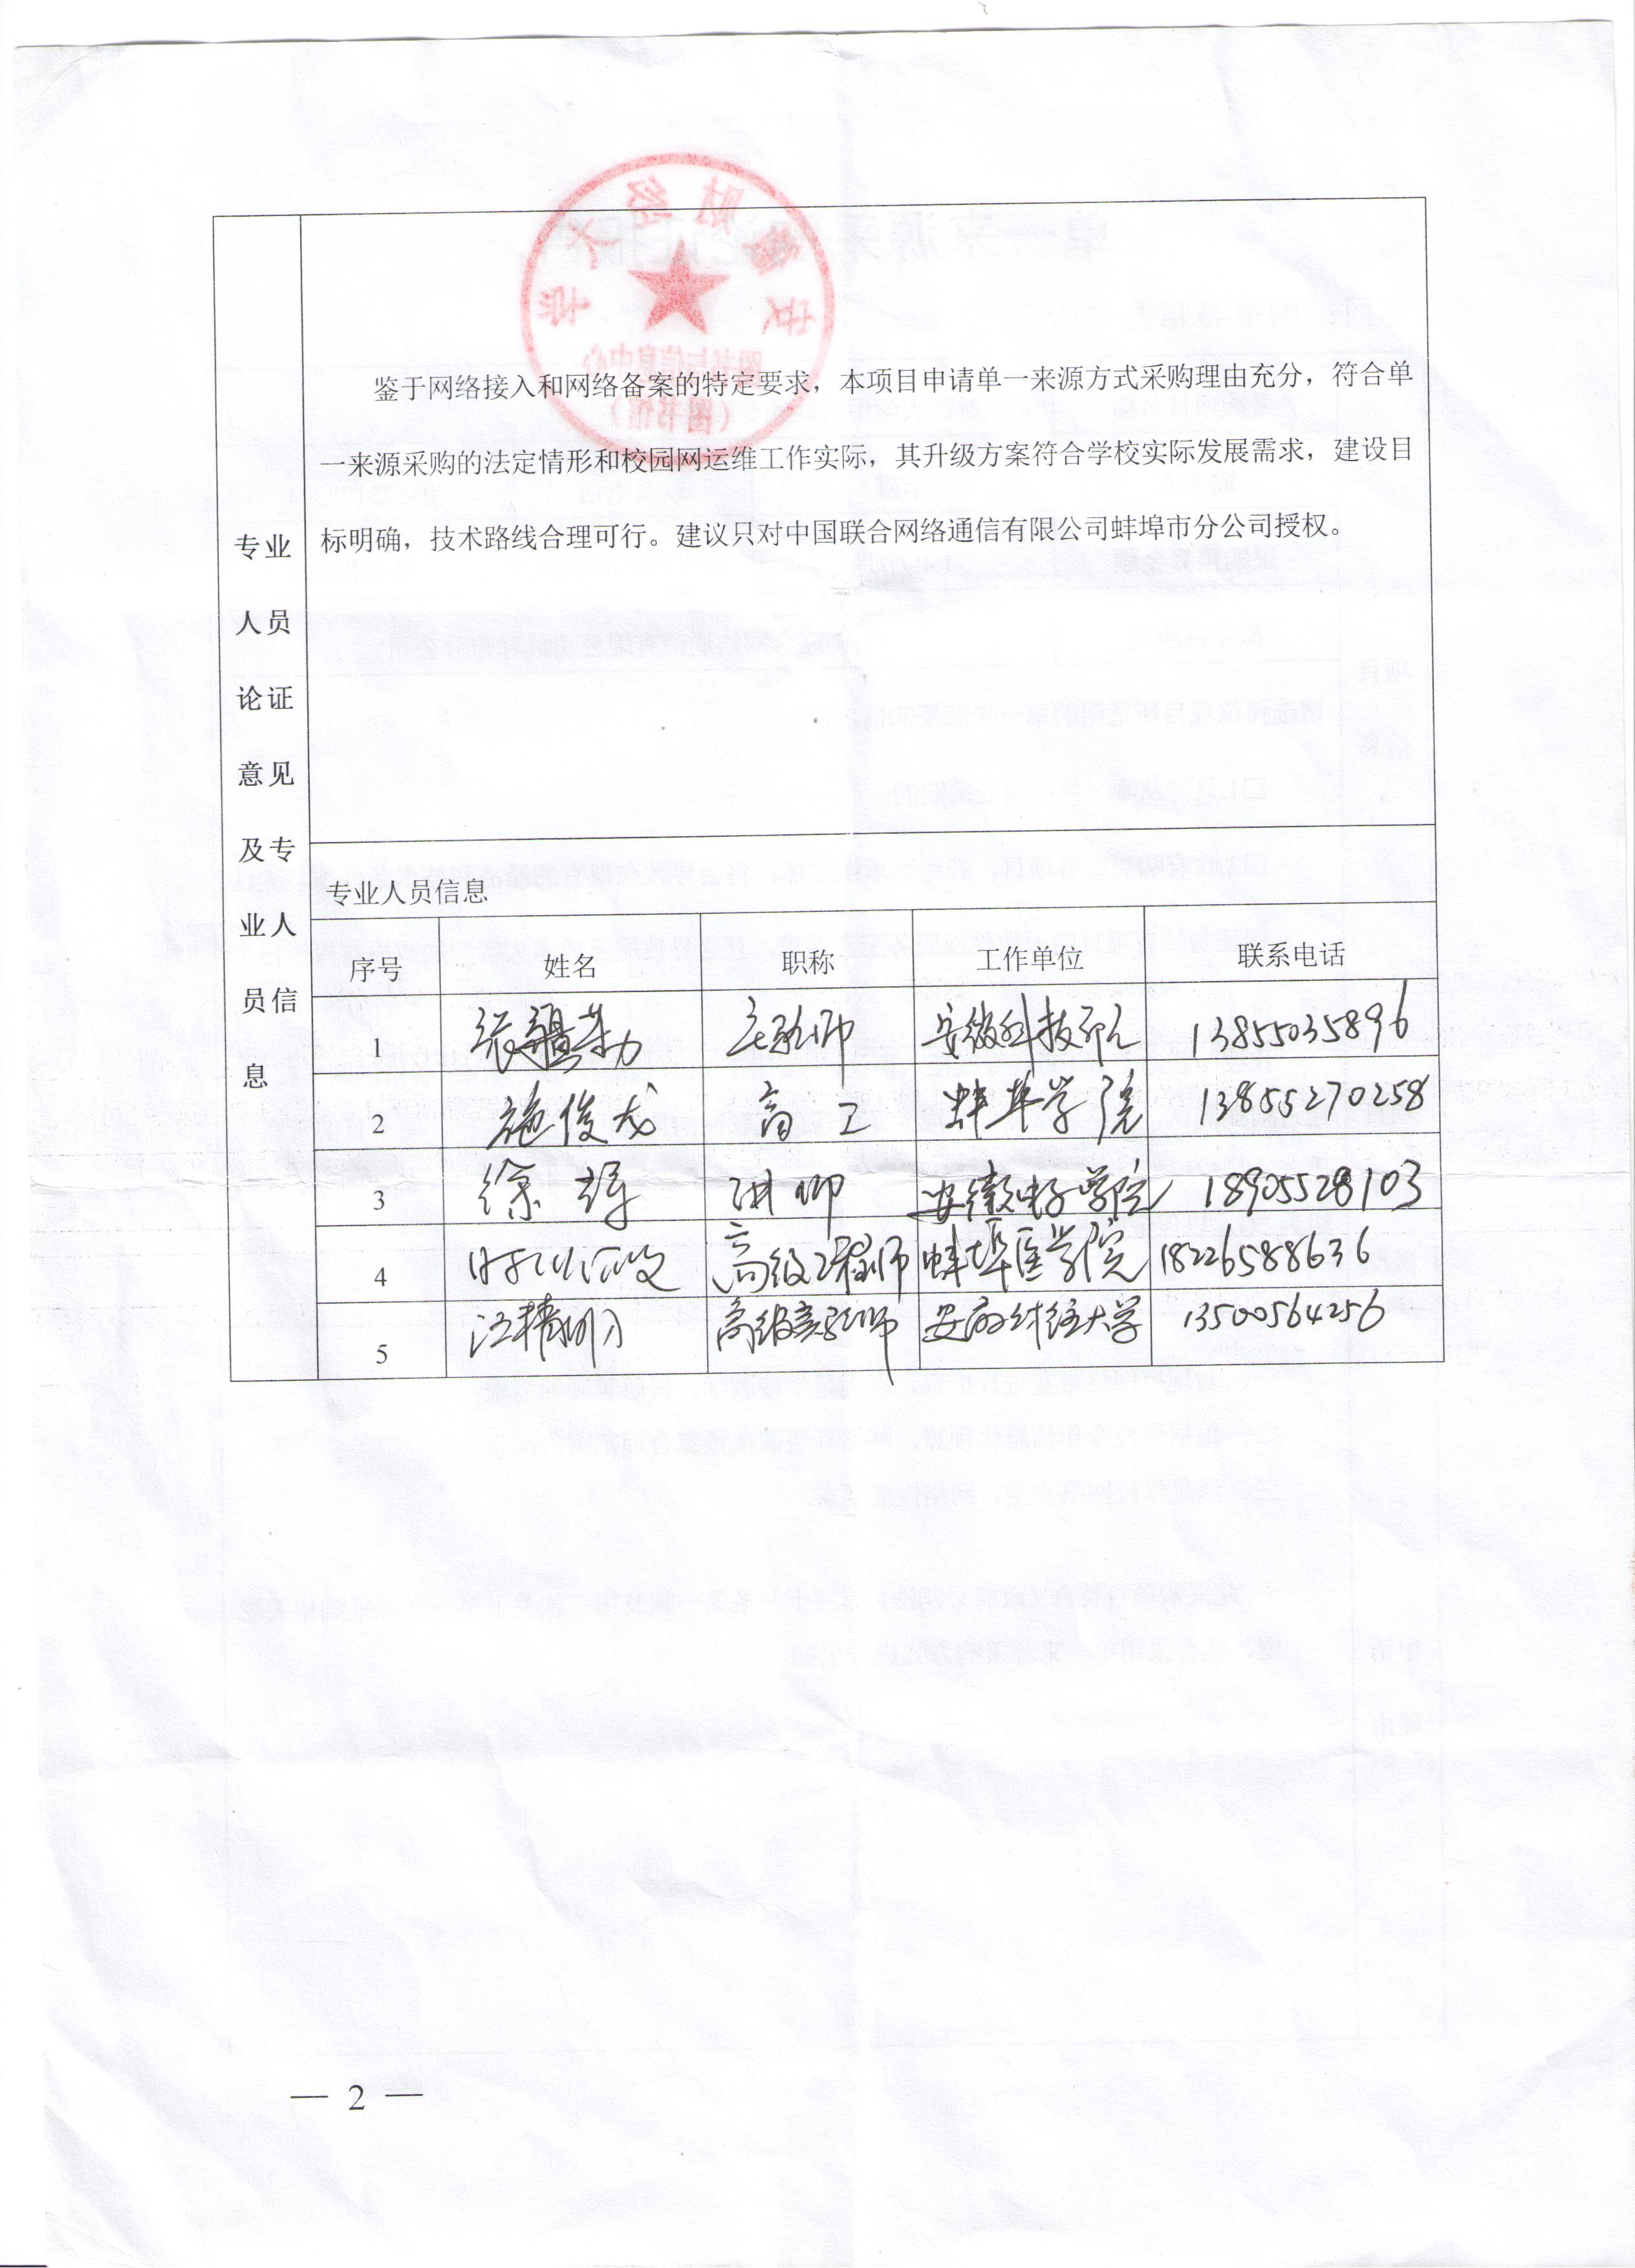 鉴于网络接入和网络备案的特定要求，本项目申请单一来源方式采购理由充分，符合单
一来源采购的法定情形和校园网运维工作实际，其升级方案符合学校实际发展需求，建设目
标明确，技术路线合理可行。建议只对中国联合网络通信有限公司蚌埠市分公司授权。
专业
人员
论证
意见
及专
业人
员信
息
专业人员信息
序号 姓名 职称 工作单位 联系电话
1 实验师 安徽科技学院 13855035896
2 施俊龙 高工 蚌埠学院 13855270258
3 徐 讲师 安徽电子学院 18905528103
4 高级工程师 蚌埠医学院 18226588636
5 汪精明 高级实验师 安徽财经大学 13500564256
— 2 —